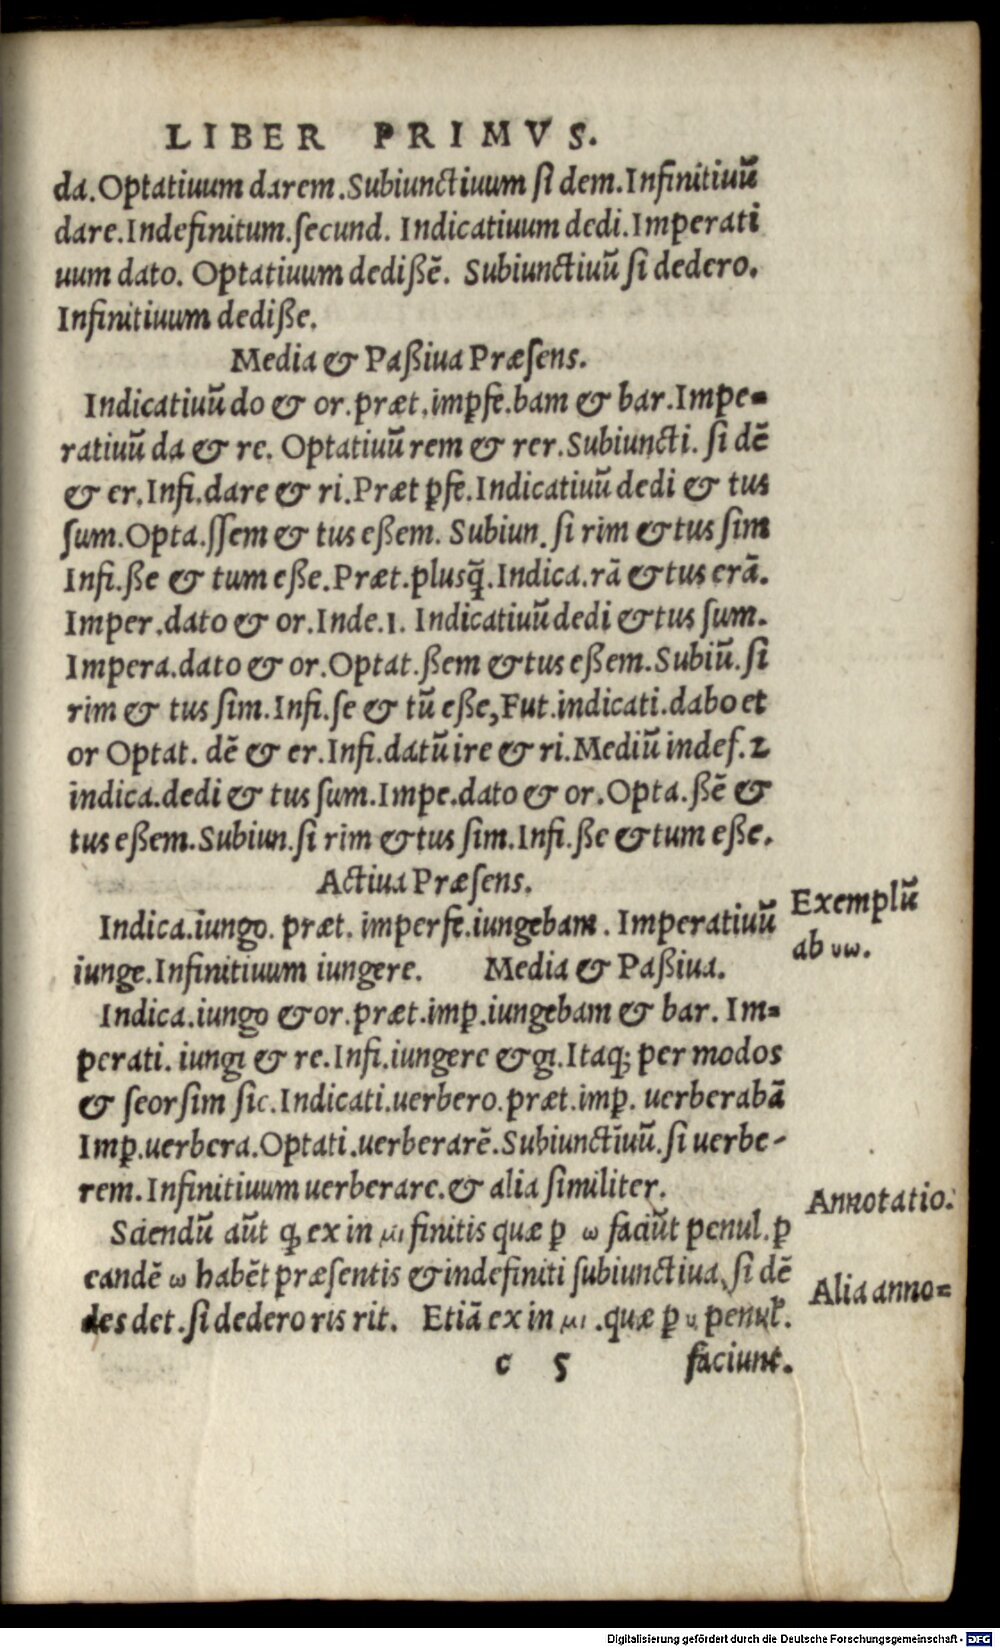 LIBER PRIMVS.
da. Optatiuum darem. Subiunctiuum si dem. Infinitiuū
dare. Indefinitum. secund. Indicatiuum dedi. Imperati
uum dato. Optatiuum dedißē. Subiunctiuū si dedero.
Infinitiuum dediße.
Media & Paßiua Præsens.
Indicatiuū do & or. præt. imꝑfe. bam & bar. Impe=
ratiuū da & re. Optatiuū rem & rer. Subiuncti. si dē
& er. Infi. dare & ri. Præt ꝑfe. Indicatiuū dedi & tus
sum. Opta. ssem & tus eßem. Subiun. si rim & tus sim
Infi. ße & tum eße. Præt. plusq̃. Indica. rā & tus erā.
Imper. dato & or. Inde. 1. Indicatiuū dedi & tus sum.
Impera. dato & or. Optat. ßem & tus eßem. Subiū. si
rim & tus sim. Infi. se & tū eße, Fut. indicati. dabo et
or Optat. dē & er. Infi. datū ire & ri. Mediū indef. 2
indica. dedi & tus sum. Impe. dato & or. Opta. ßē &
tus eßem. Subiun. si rim & tus sim. Infi. ße & tum eße.
Actiua Præsens.
Indica. iungo. præt. imperfe. iungebam. Imperatiuū
Exemplū
ab υω.
iunge. Infinitiuum iungere. Media & Paßiua.
Indica. iungo & or. præt. imꝑ. iungebam & bar. Im=
perati. iungi & re. Infi. iungere & gi. Itaq; per modos
& seorsim sic. Indicati. uerbero. præt. imꝑ. uerberabā
Imꝑ. uerbera. Optati. uerberarē. Subiunctiuū. si uerbe-
rem. Infinitiuum uerberare. & alia similiter.
Annotatio.
Sciendū aūt ꝙ ex in μι finitis quæ ꝑ ω faciūt penul. ꝑ
eandē ω habēt præsentis & indefiniti subiunctiua, si dē
Alia anno=
des det. si dedero ris rit. Etiā ex in μι. quæ ꝑ υ penul.
c 5 faciunt.
Digitalisierung gefördert durch die Deutsche Forschungsgemeinschaft - DFG